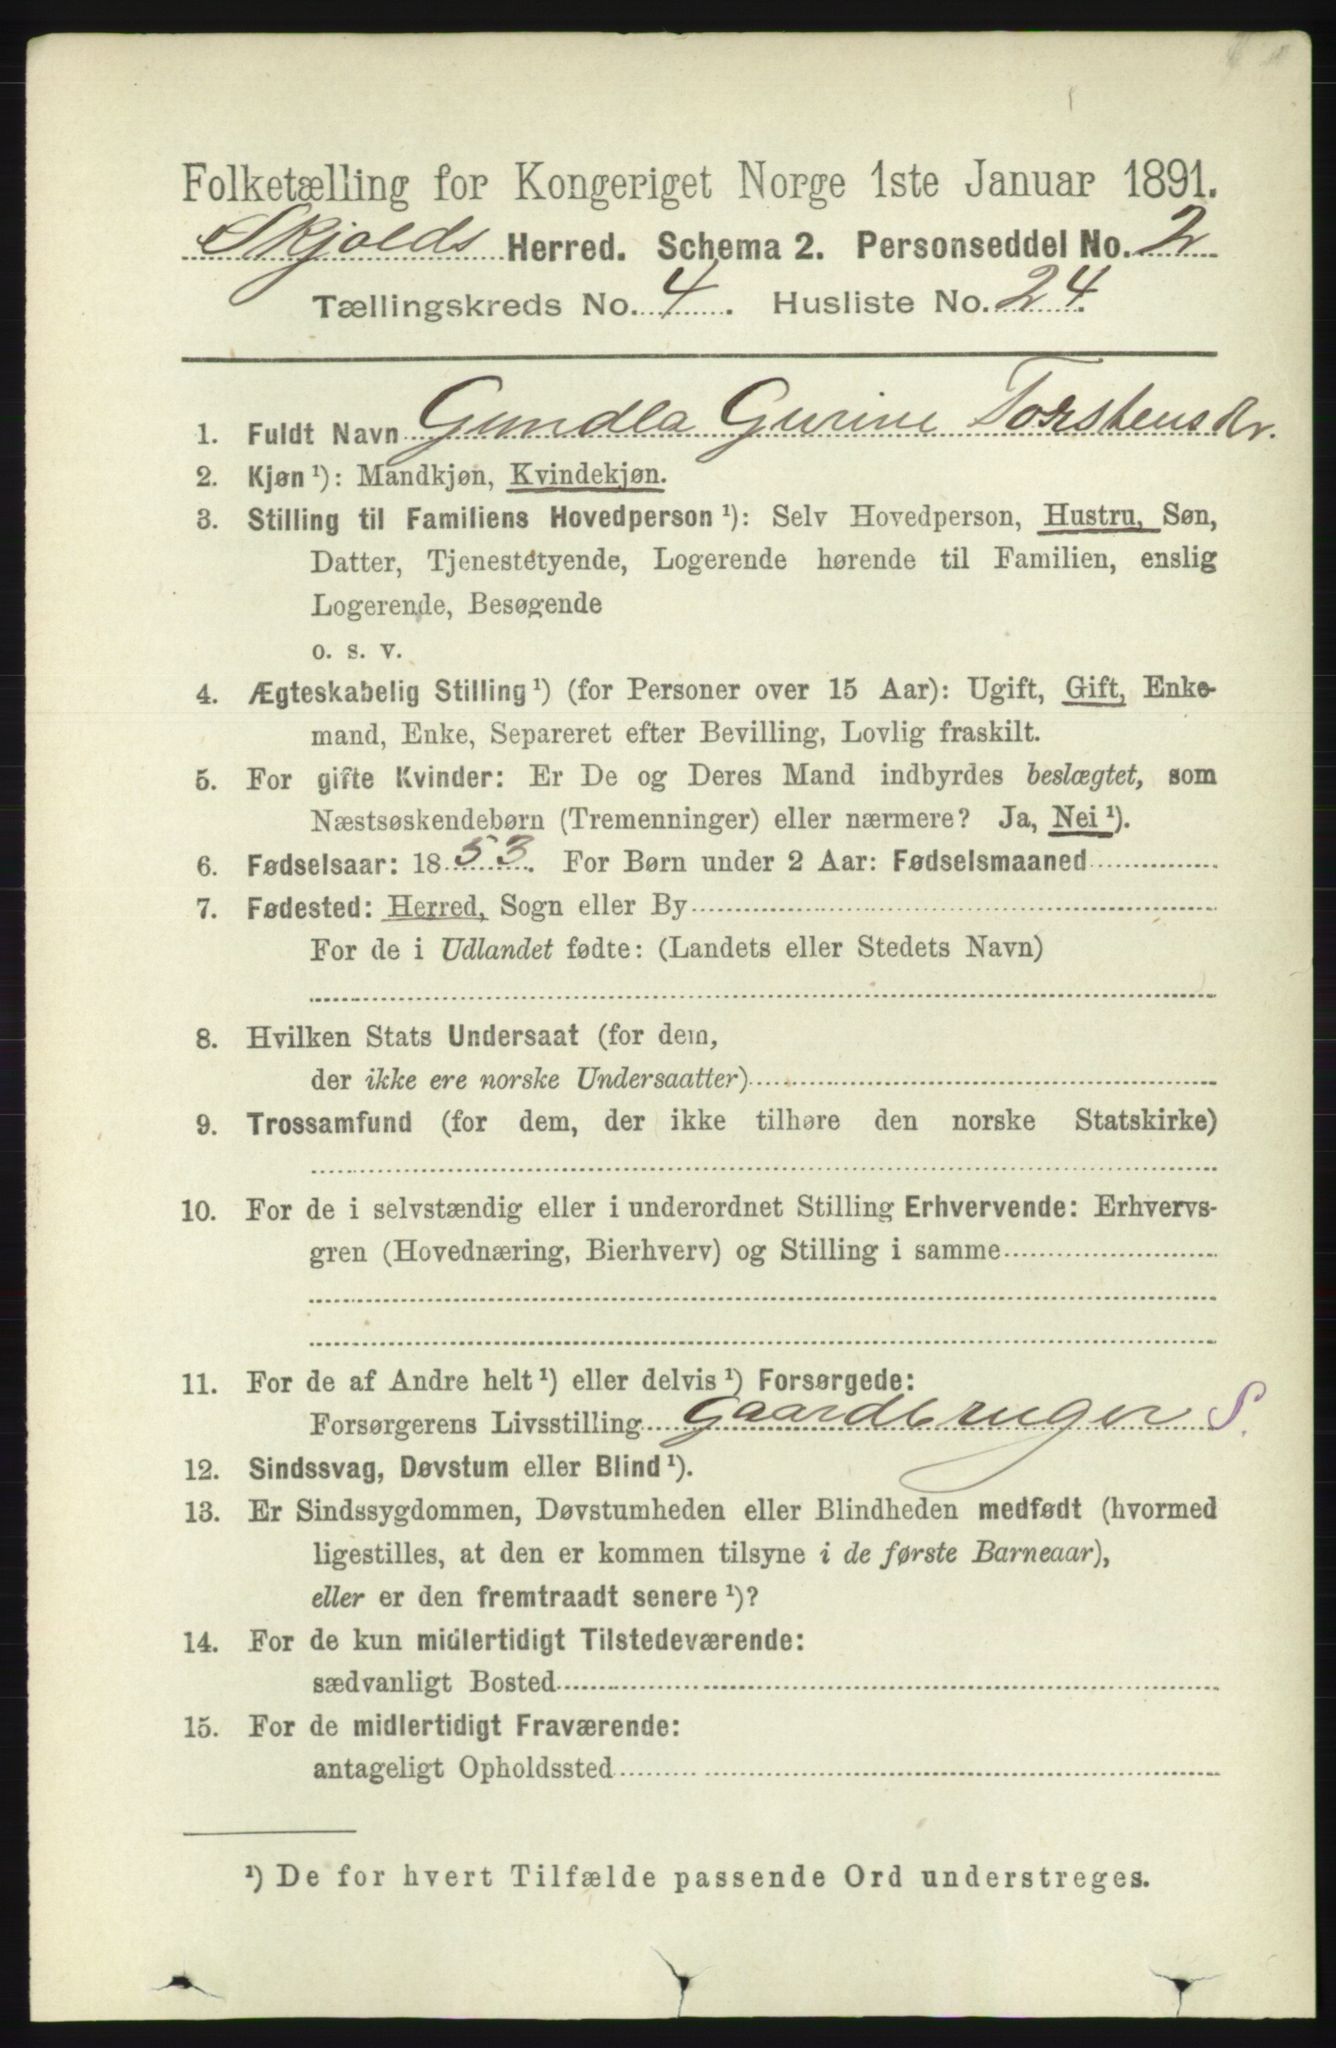 Folketælling for Kongeriget Norge 1ste Januar 1891.
Skjolds Herred. Schema 2. Personseddel No. 2
Tællingskreds No. 4. Husliste No. 24.
1. Fuldt Navn Gundla Gurine Torstensdr.
2. Kjøn ¹): Mandkjøn, Kvindekjøn.
3. Stilling til Familiens Hovedperson ¹): Selv Hovedperson, Hustru, Søn,
Datter, Tjenestetyende, Logerende hørende til Familien, enslig
Logerende, Besøgende
o. s. v.
4. Ægteskabelig Stilling ¹) (for Personer over 15 Aar): Ugift, Gift, Enke-
mand, Enke, Separeret efter Bevilling, Lovlig fraskilt.
5. For gifte Kvinder: Er De og Deres Mand indbyrdes beslægtet, som
Næstsøskendebørn (Tremenninger) eller nærmere? Ja, Nei ¹).
6. Fødselsaar: 1853. For Børn under 2 Aar: Fødselsmaaned
7. Fødested: Herred, Sogn eller By
For de i Udlandet fødte: (Landets eller Stedets Navn)
8. Hvilken Stats Undersaat (for dem,
der ikke ere norske Undersaatter)
9. Trossamfund (for dem, der ikke tilhøre den norske Statskirke)
10. For de i selvstændig eller i underordnet Stilling Erhvervende: Erhvervs-
gren (Hovednæring, Bierhverv) og Stilling i samme
11. For de af Andre helt ¹) eller delvis ¹) Forsørgede:
Forsørgerens Livsstilling Gaardbruger S.
12. Sindssvag, Døvstum eller Blind ¹).
13. Er Sindssygdommen, Døvstumheden eller Blindheden medfødt (hvormed
ligestilles, at den er kommen tilsyne i de første Barneaar),
eller er den fremtraadt senere ¹)?
14. For de kun midlertidigt Tilstedeværende:
sædvanligt Bosted
15. For de midlertidigt Fraværende:
antageligt Opholdssted
¹) De for hvert Tilfælde passende Ord understreges.